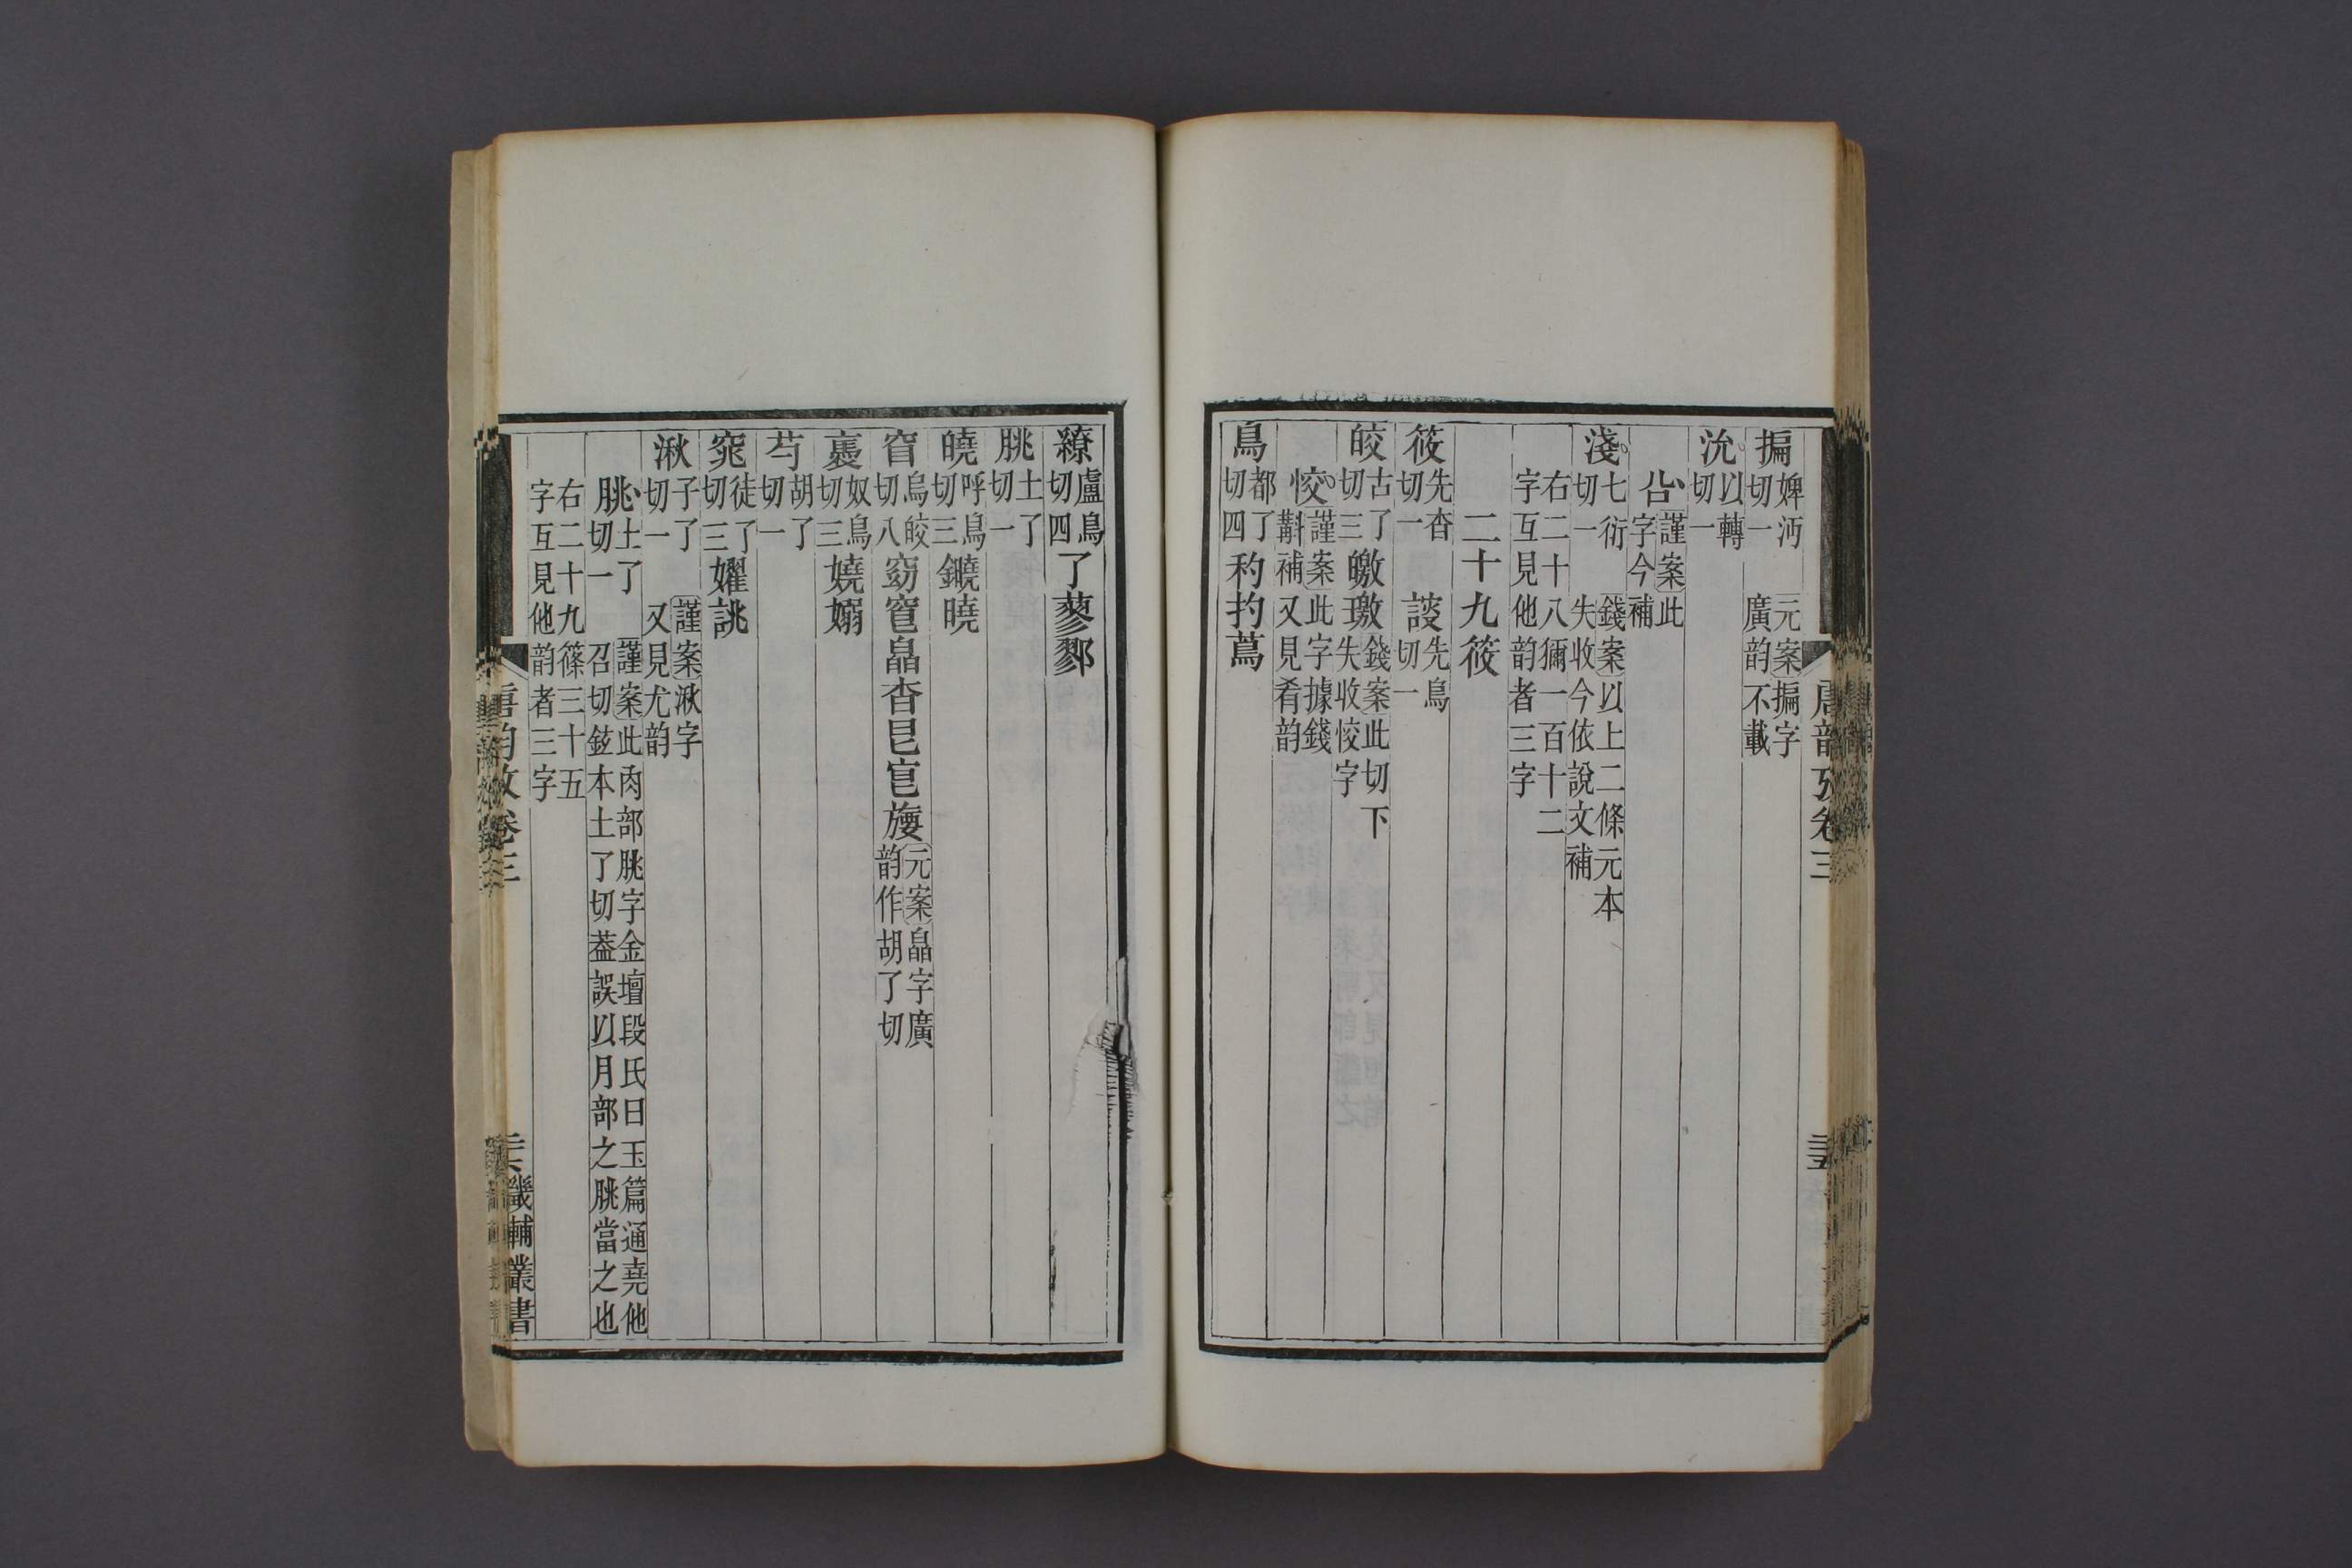 唐韵攷卷三
三五
揙婢沔切一 元案揙字廣韵不載
沇以轉切一
㕣謹案此字今補
淺七衍切一 錢案以上二條元本失收今依說文補
右二十八獮一百十二字互見他韵者三字
二十九筱
筱先杳切一 謏先鳥切一
皎古了切三皦璬錢案此切下失收恔字
恔謹案此字據錢斠補又見肴韵
鳥都了切四𥝢扚蔦
繚盧鳥切四了蓼鄝
朓土了切一
皢呼鳥切三鐃曉
窅烏皎切八窈窔皛杳㫐㝔㫏元案皛字廣韵作胡了切
褭奴鳥切三嬈嫋
芍胡了切一
窕徒了切三嬥誂
湫子了切一 謹案湫字又見尤韵
朓土了切一 謹案此肉部朓字金壇段氏曰玉篇通堯他召切鉉本土了切葢誤以月部之朓當之也
右二十九筱三十五字互見他韵者三字
唐韵攷卷三
三六
畿輔叢書